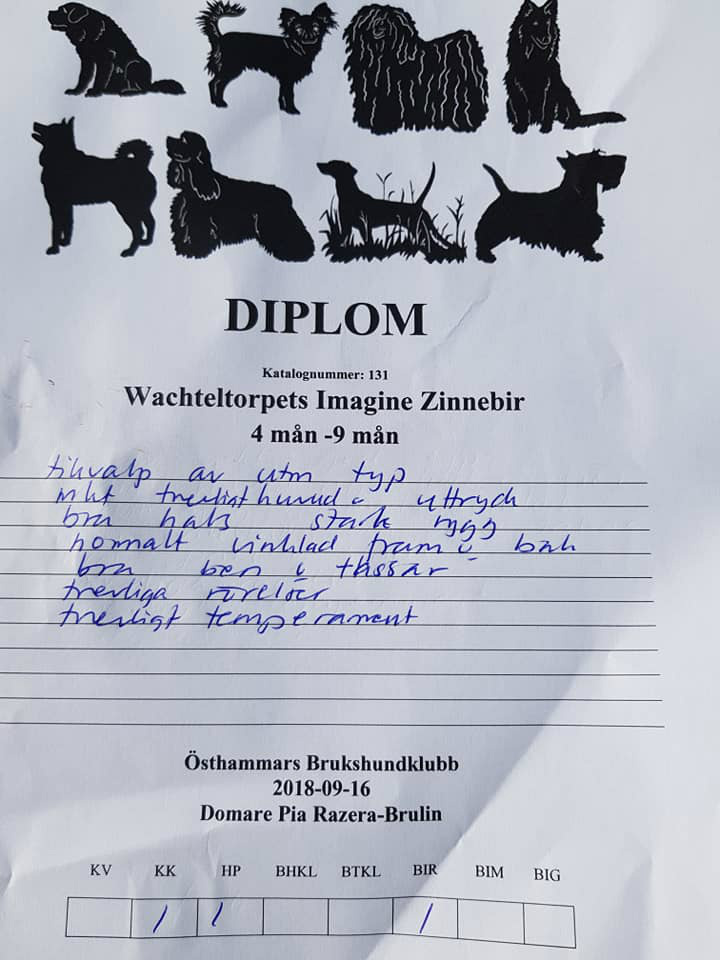 DIPLOM
Katalognummer: 131
Wachteltorpets Imagine Zinnebir
4 mån -9 mån
tikvalp av utm typ
mkt trevligt huvud o uttryck
bra hals stark rygg
normalt vinklad fram o bak
bra ben o tassar
trevliga rörelser
trevligt temperament
Östhammars Brukshundklubb
2018-09-16
Domare Pia Razera-Brulin
KV KK HP BHKL BTKL BIR BIM BIG
/ / /